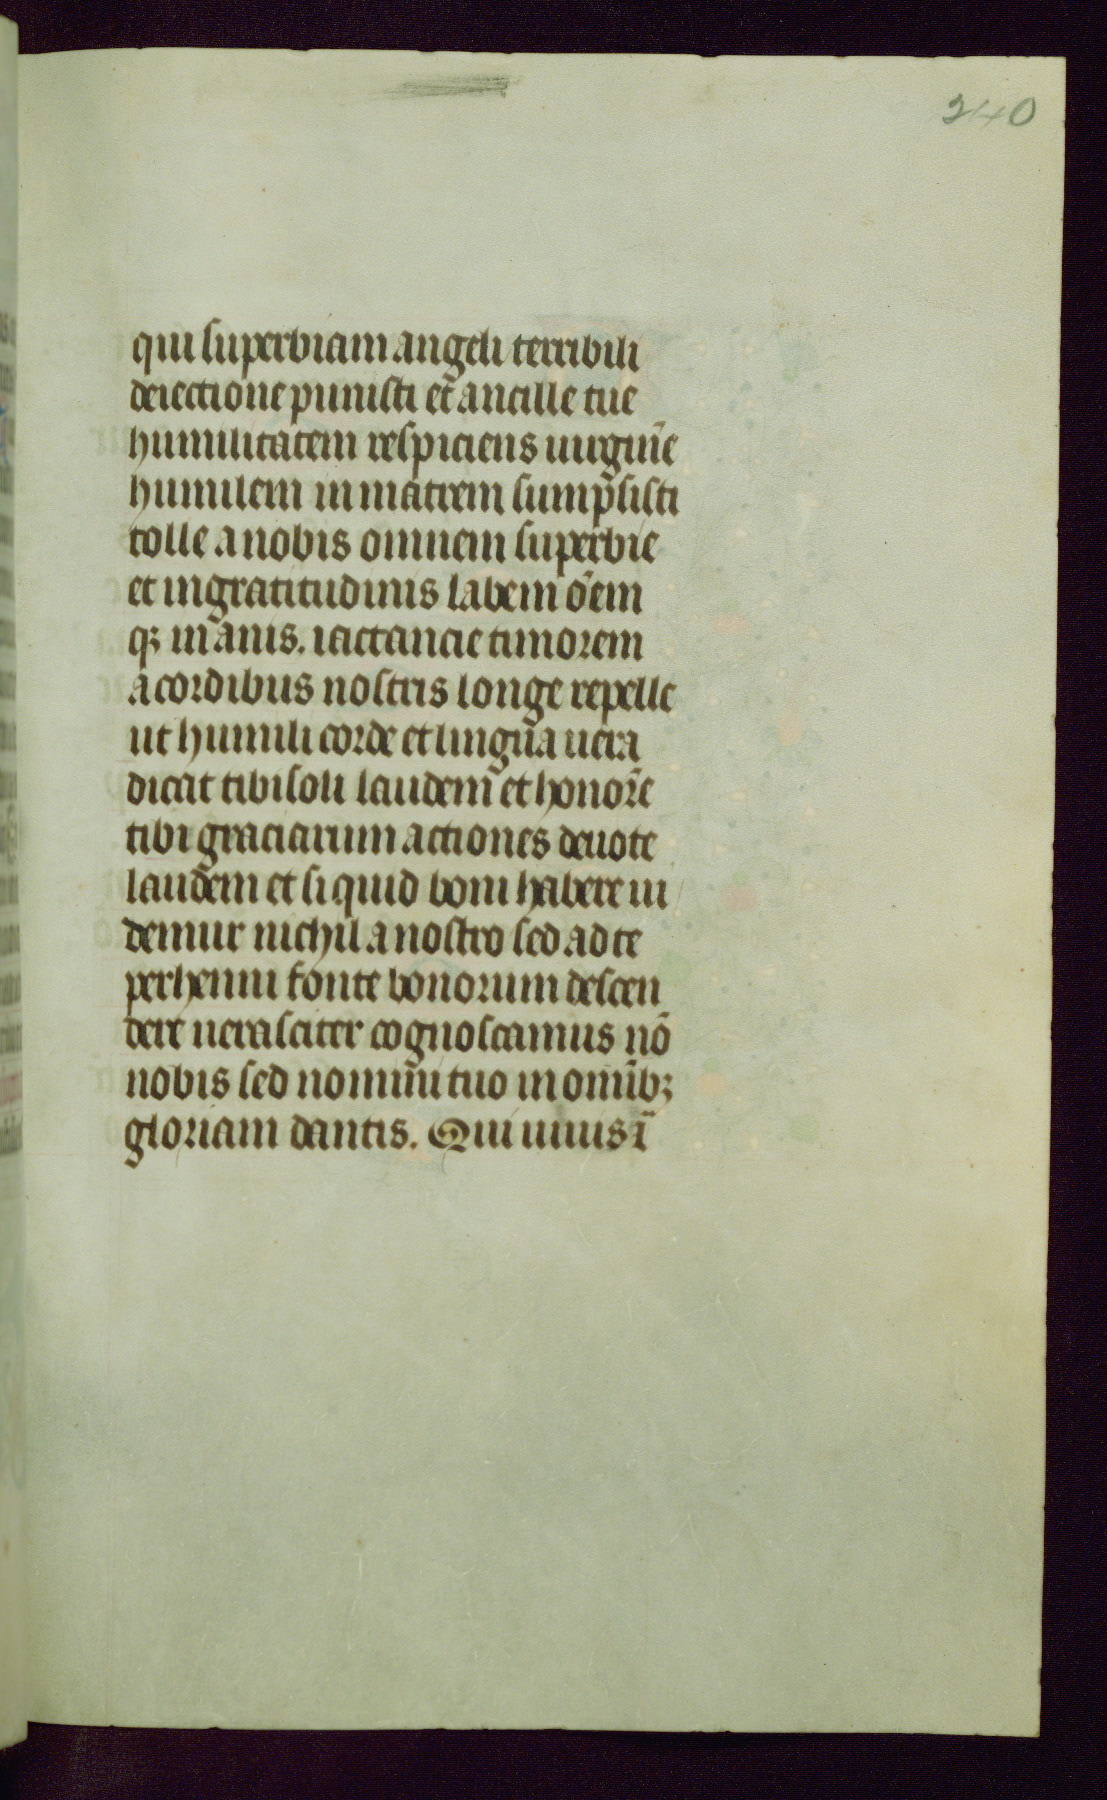 240
qui superbiam angeli terribili
deiectione punisti et ancille tue
humilitatem respiciens uirginẽ
humilem in matrem sumpsisti
tolle a nobis omnem superbie
et ingratitudinis labem õem
qꝫ inanis. iactancie timorem
a cordibus nostris longe repelle
ut humili corde et lingua uera
dicat tibi soli laudem et honorẽ
tibi graciarum actiones deuote
laudem et si quid boni habere ui
demur nichil a nostro sed ad te
perhenni fonte bonorum descen
dere ueraciter cognoscamus nõ
nobis sed nomini tuo in omĩbꝫ
gloriam dantis. Qui uiuis ĩ